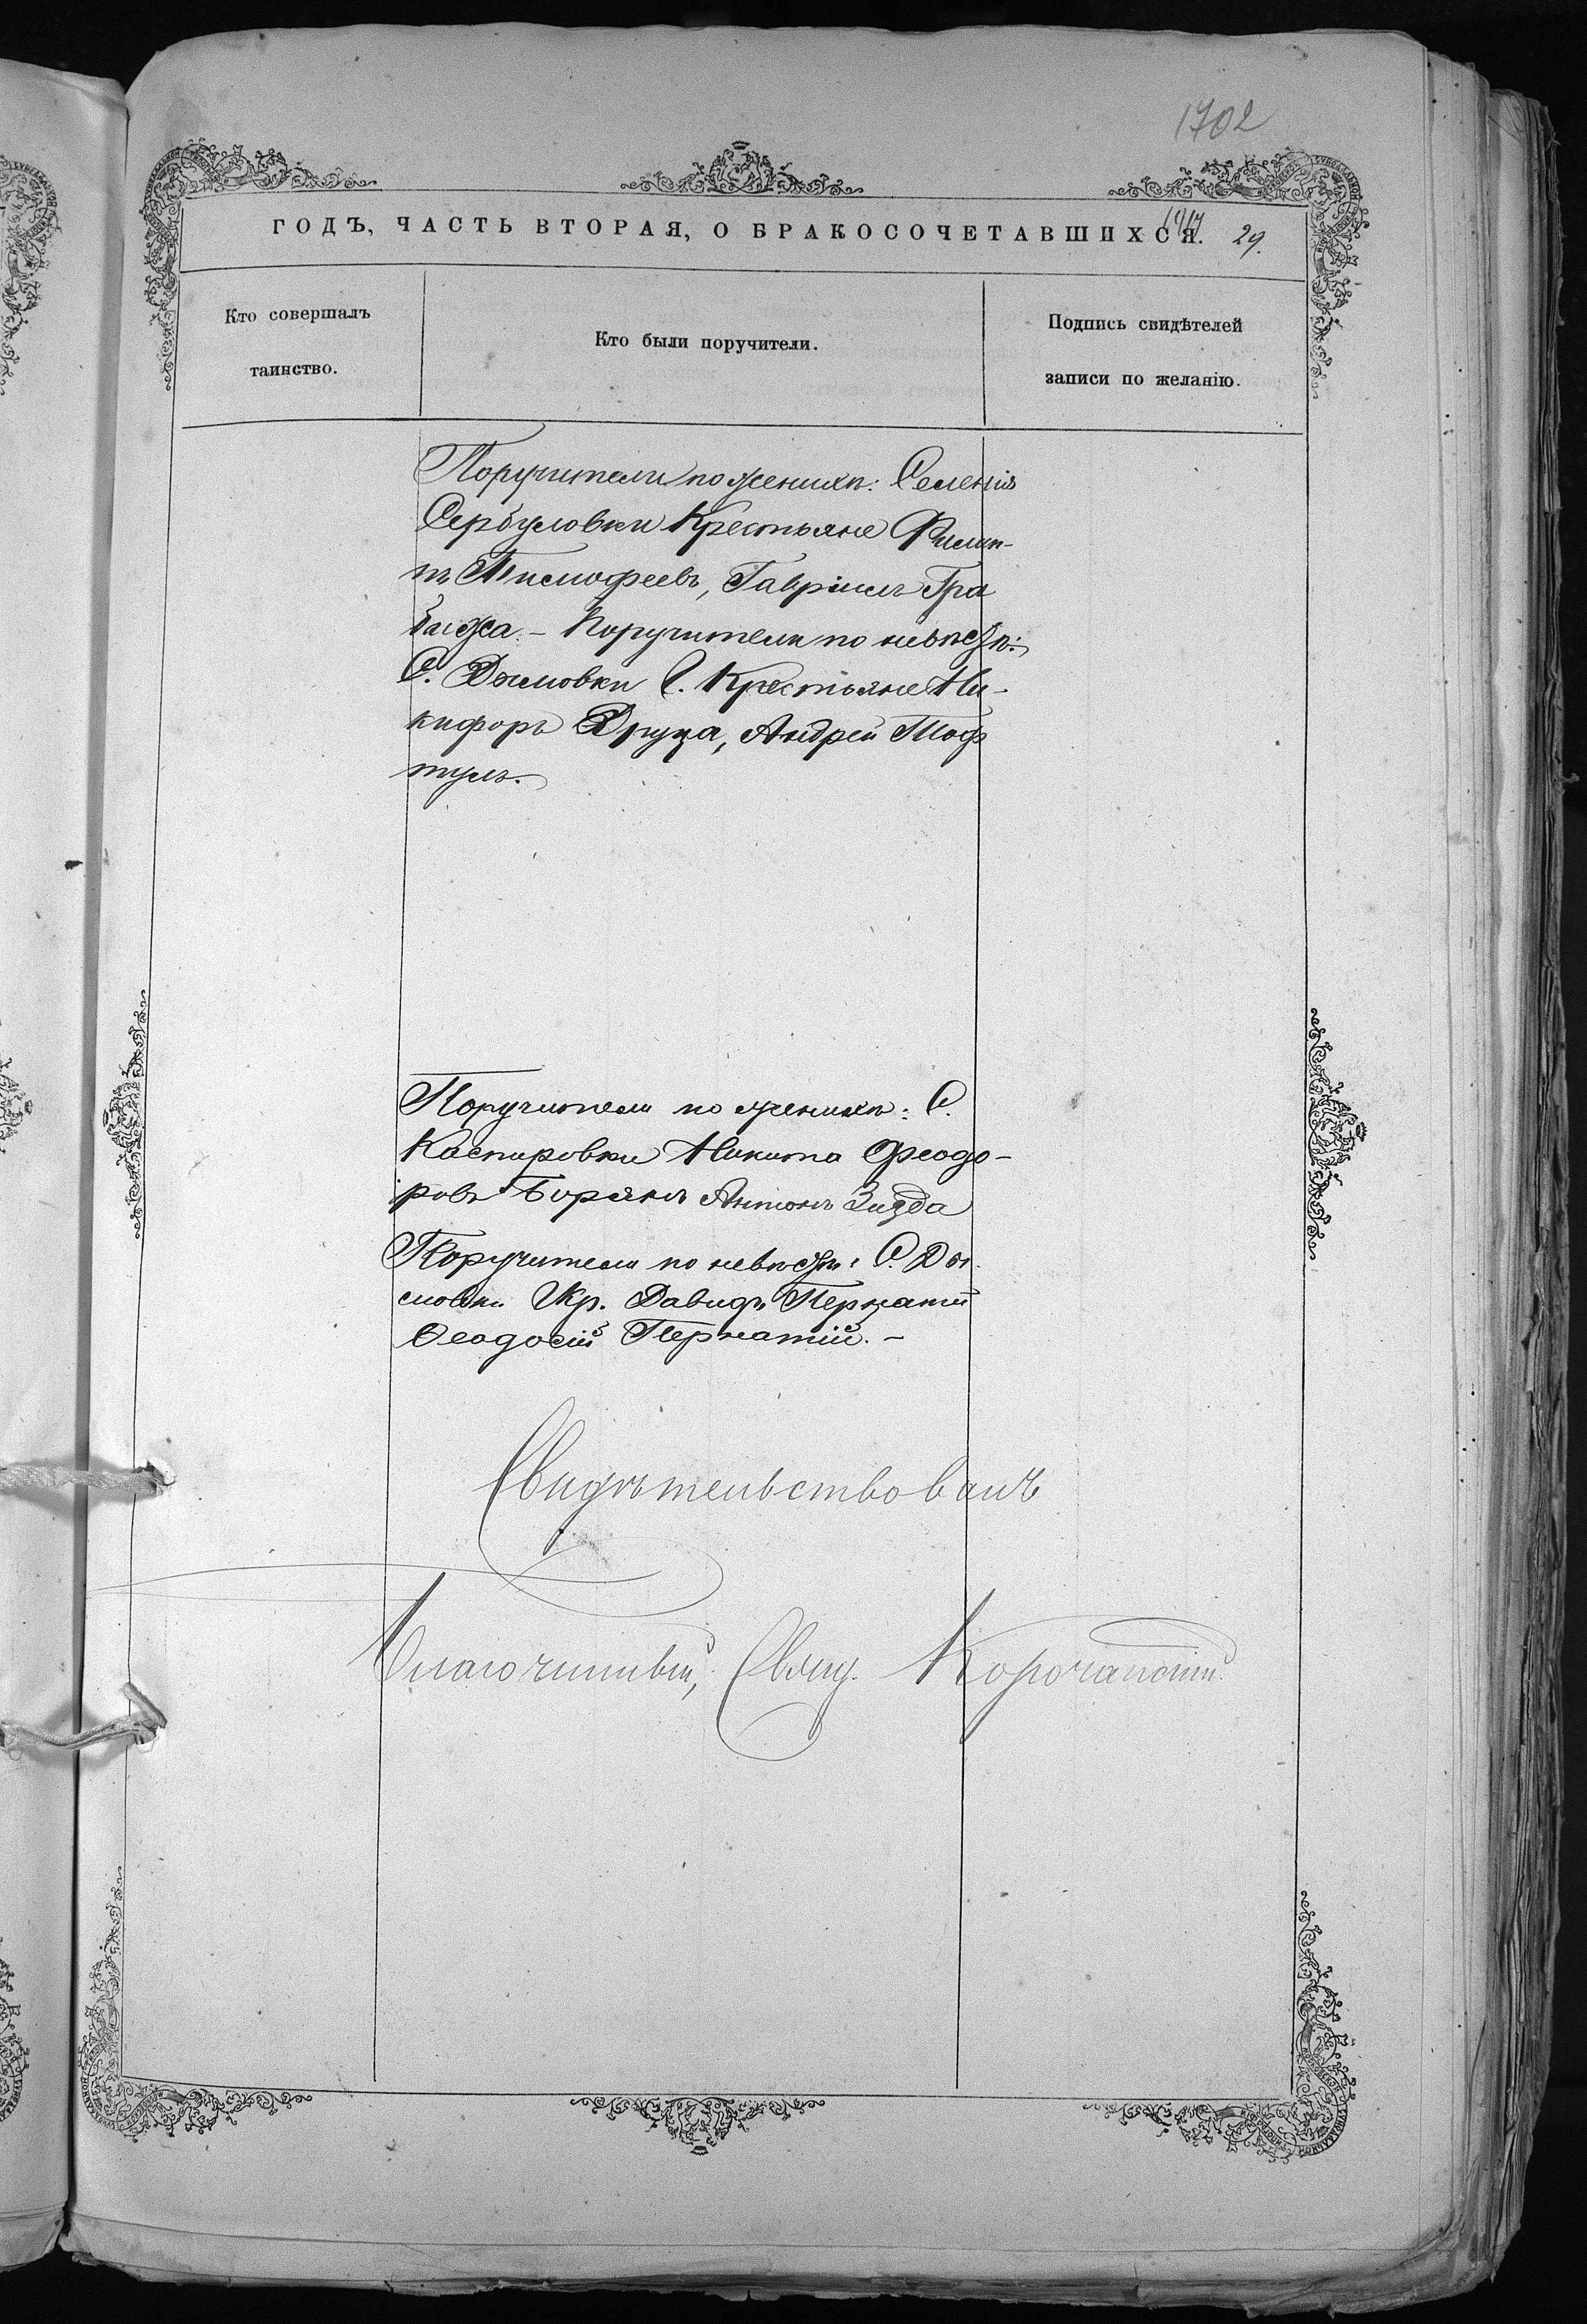 1702
ГОДЪ, ЧАСТЬ ВТОРАЯ, О БРАКОСОЧЕТАВШИХСЯ.
29.
Кто совершалъ
таинство.
Кто были поручители.
Подпись свидѣтелей
записи по желанію.
Поручители по женихѣ: Селенія
Сербуловки Крестьяне Филип-
пъ Тимофеевъ, Гавріилъ Гра
Поручители по невѣстѣ:
С. Дымовки Крестьяне Ни-
кифоръ Друца, Андрей Тоф
тулъ.
Поручители по женихѣ: С.
Каспировки Никита Феодо-
ровъ Борянъ Антонъ
Поручители по невѣстѣ: С. Ды
мовки Кр. Давидъ
Феодосій Пернатій. -
Свидѣтельствовалъ
Благочинный, Свящ.